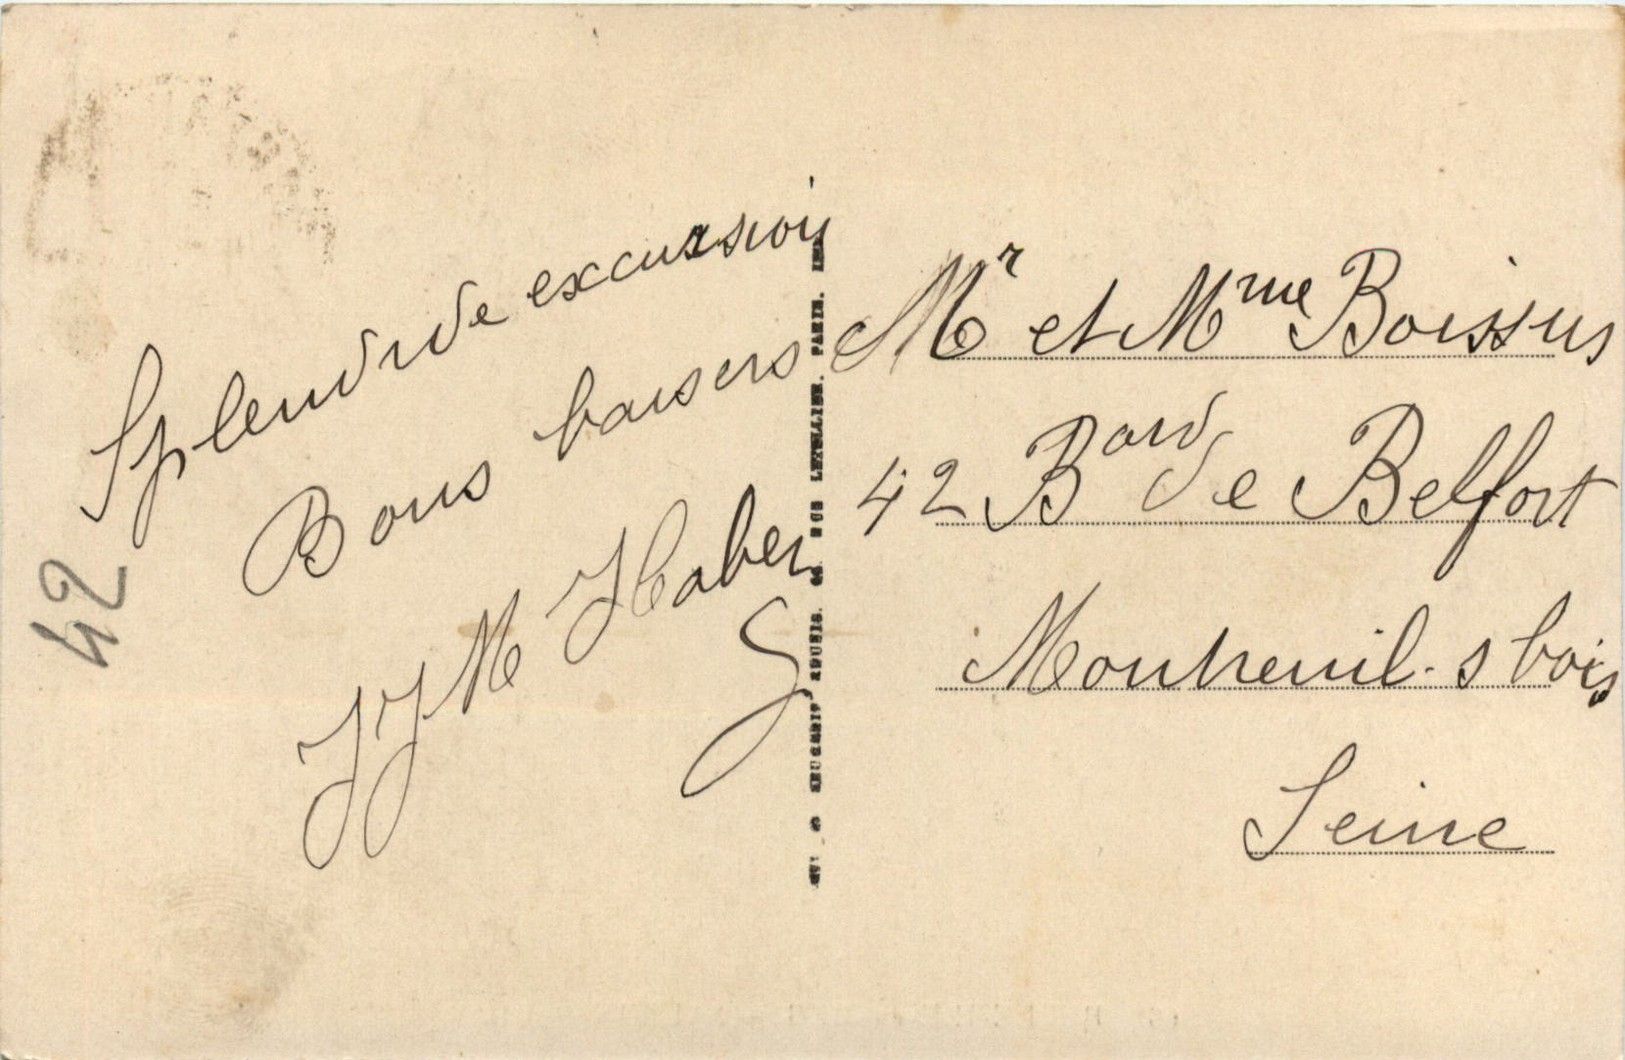 Splendide excursion
Bons baisers
JJM Haber
Mr et Mme Boissus
42 Bard de Belfort
Montreuil. s bois
Seine
42
RUE LETELLIER. PARIS.